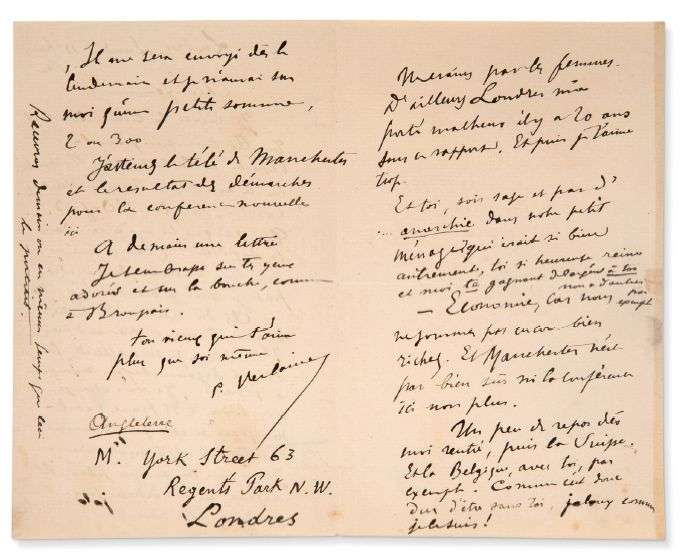 , Il me sera envoyé dès le
lendemain et je n'aurai sur
moi qu'une petite somme,
2 ou 300
J'attends le télé de Manchester
et le résultat des démarches
pour la conférence nouvelle
ici
A demain une lettre
Je t'embrasse sur tes yeux
adorés et sur la bouche, comme
à Broussais.
ton vieux qui t'aime
plus que soi même
P. Verlaine
Angleterre
M. York Street 63
Regents Park N.W.
Londres
Recevras demain ou en même temps que ceci
le
Ne crains pas les femmes.
D'ailleurs Londres m'a
porté malheur il y a 20 ans
sous ce rapport. Et puis je t'aime
trop.
Et toi, sois sage et pas d'
anarchie dans notre petit
ménage qui irait si bien
autrement, toi si heureuse reine
et moi gagnant de l'argent à toi
non à d'autres
par exemple
— Economise, car nous
ne sommes pas encore bien
riches. Et Manchester n'est
pas bien sûr ni la conférence
ici non plus.
Un peu de repos dès
moi rentré, puis la Suisse.
Et la Belgique, avec toi, par
exemple. Comme c'est donc
dur d'être sans toi, jaloux comme
je le suis!